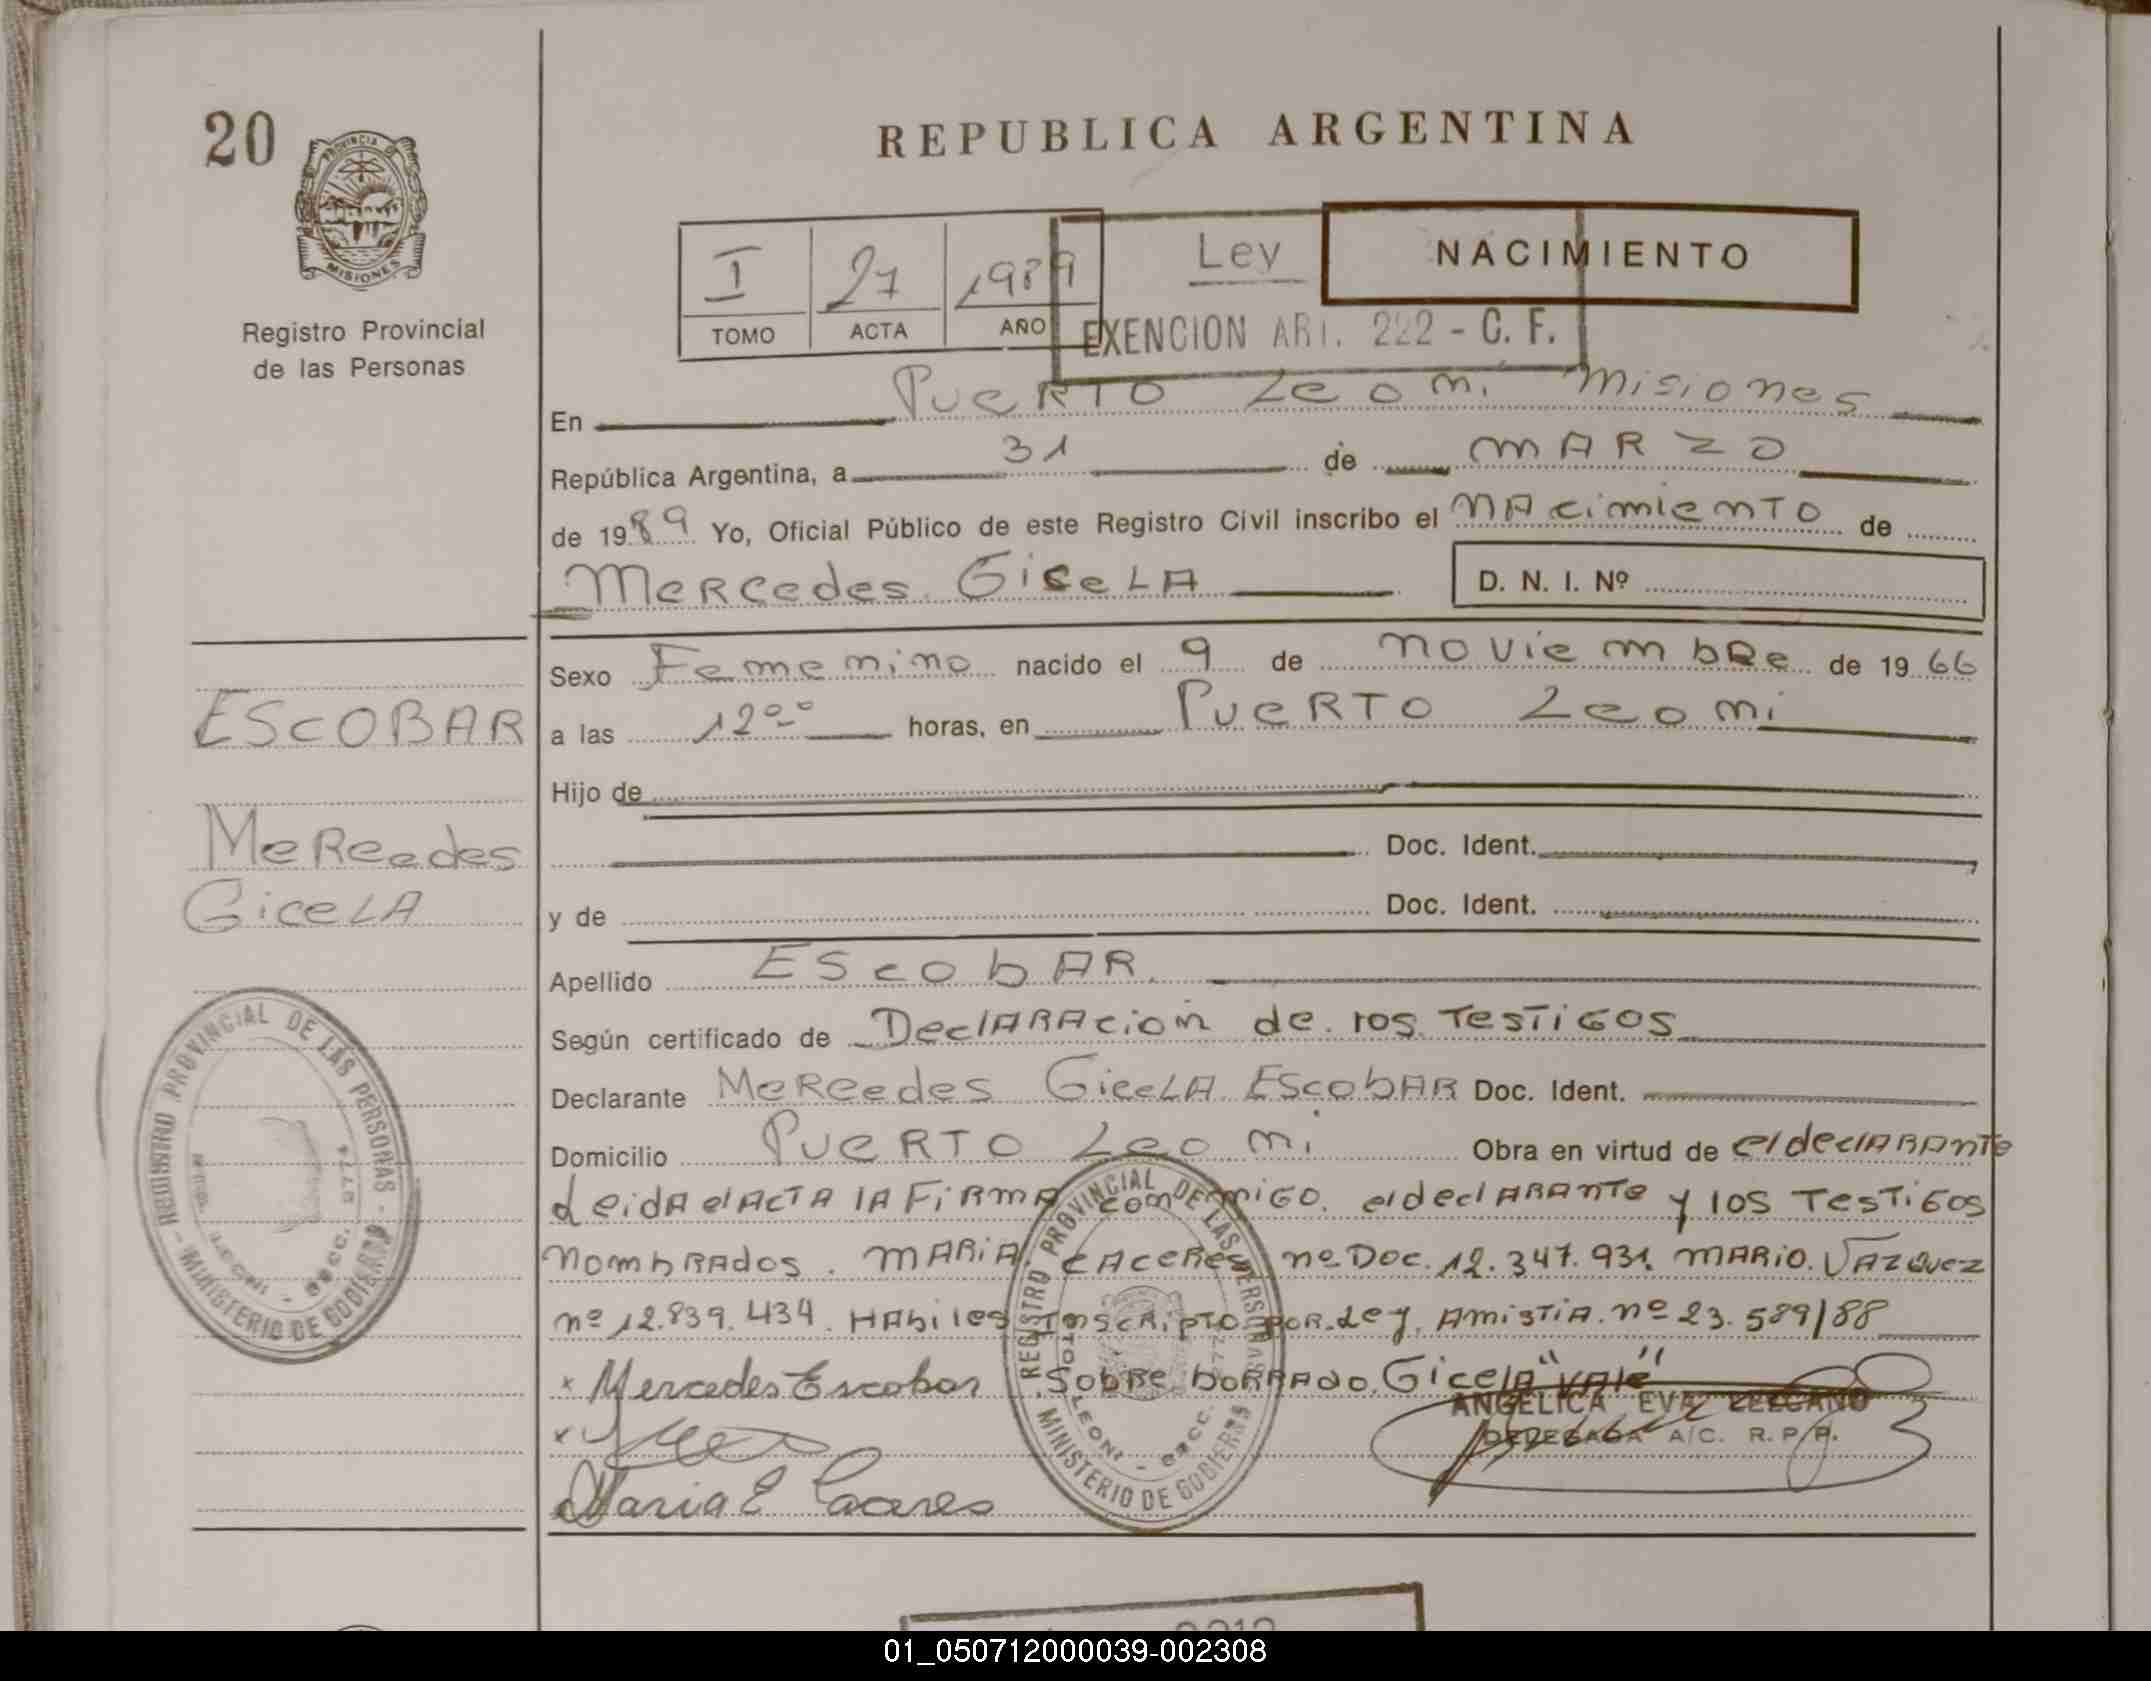 20
PROVINCIA DE
MISIONES
Registro Provincial
de las Personas
REPUBLICA ARGENTINA
I 27 1989
TOMO ACTA AÑO
Ley
EXENCION ART. 222 - C. F.
NACIMIENTO
En Puerto Leoni Misiones
República Argentina, a 31 de MARZO
de 1989 Yo, Oficial Público de este Registro Civil inscribo el NAcimiento de
Mercedes Gicela D. N. I. Nº
Sexo Femenino nacido el 9 de noviembre de 1966
a las 12°° horas, en Puerto Leoni
Hijo de
Doc. Ident.
y de Doc. Ident.
Apellido EScobAR
Según certificado de DeclARAcion de los Testigos
Declarante Mercedes Gicela Escobar Doc. Ident.
Domicilio Puerto Leoni Obra en virtud de el declARAnte
Leida el ACTA la Firma conmigo el declarante y los Testigos
nombrados. Maria Caceres nº Doc. 12.347.931. Mario Vazquez
nº 12.839.434. Habiles Inscripto por Ley Amistia nº 23.589/88
x Mercedes Escobar Sobre borrado Gicela "Vale"
x
Maria E Caceres
ANGELICA EVA
DELEGADA A/C. R. P. P.
ESCOBAR
Mercedes
Gicela
REGISTRO PROVINCIAL DE LAS PERSONAS - MINISTERIO DE GOBIERNO
LEONI
REGISTRO PROVINCIAL DE LAS PERSONAS - MINISTERIO DE GOBIERNO
LEONI
01_050712000039-002308